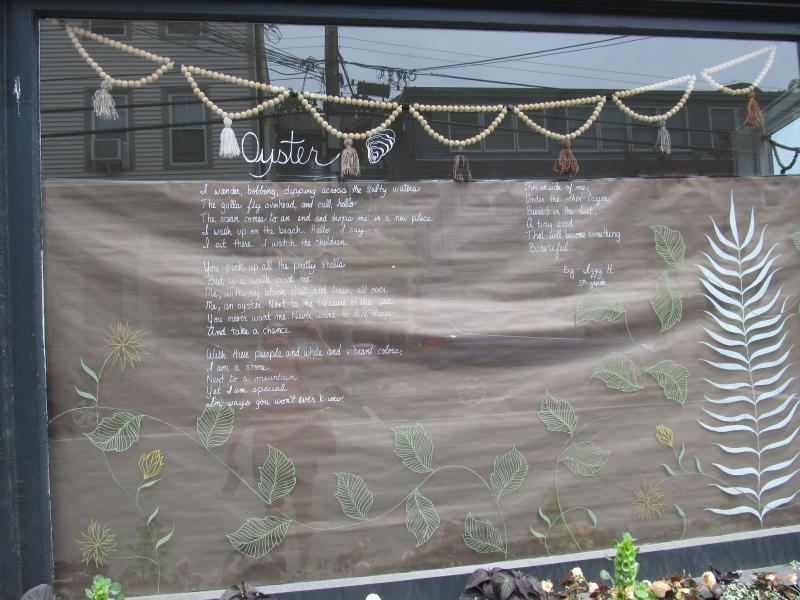 Oyster
I wander, bobbing, dipping across the salty waters
The gulls fly overhead, and call, hello
The ocean comes to an end and drops me in a new place
I wash up on the beach. Hello I say
I sit there. I watch the children.
You pick up all the pretty shells
But you walk past me
Me, with my black shell and lines all over
Me, an oyster. Next to the treasure of the sea
You never want me. Never want to dive deep
And take a chance.
With these purple and white and vibrant colors,
I am a stone
Next to a mountain
Yet I am special
In ways you won't ever know.
For inside of me,
Under the other layers,
Buried in the dirt,
A tiny seed
That will become something
Beautiful
By Izzy H.
5th grade